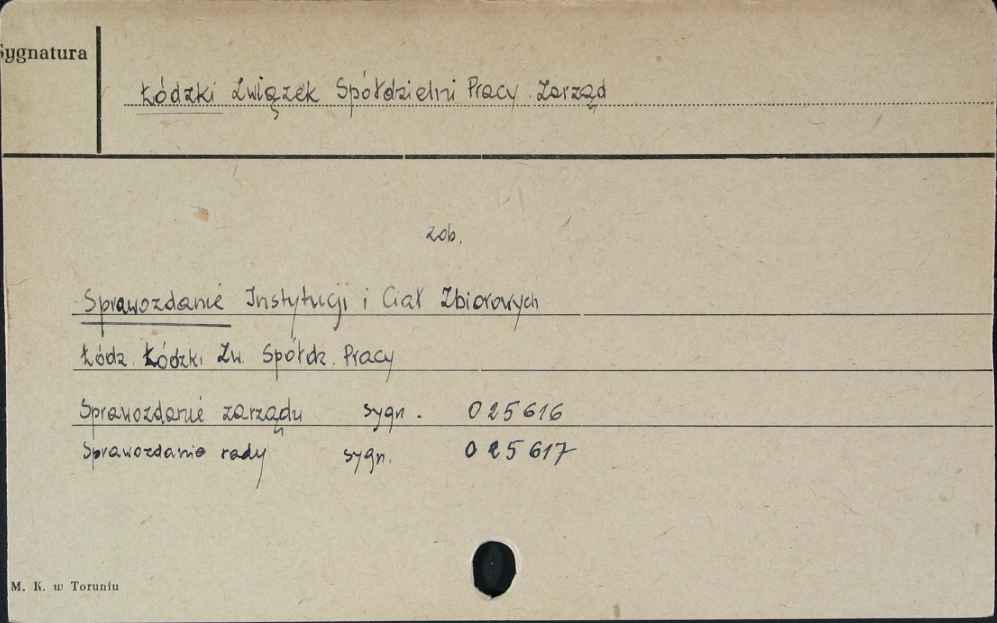 Sygnatura
Łódzki Związek Spółdzielni Pracy. Zarząd
zob.
Sprawozdanie Instytucji i Ciał Zbiorowych
Łódz. Łódzki Zw. Spółdz. Pracy
Sprawozdanie zarządu sygn. 025616
Sprawozdanie rady sygn. 025617
M. K. w Toruniu